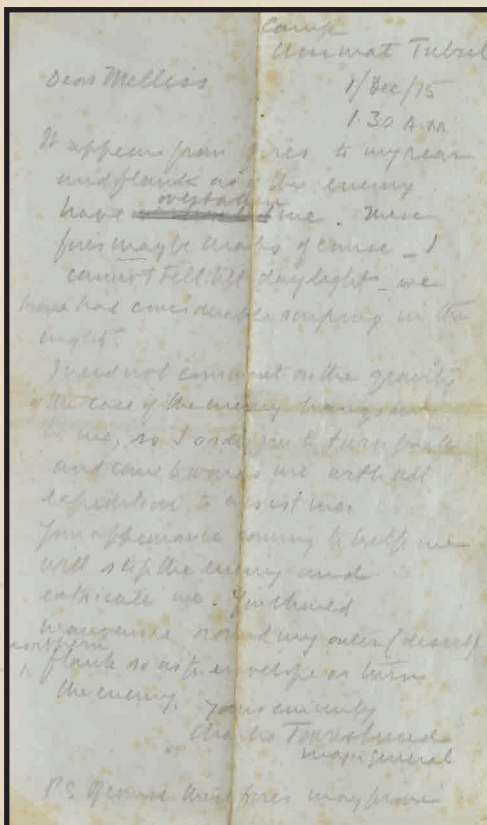 Camp
Ummat Tubul
Dear Melliss
1/Dec/15
1.30 A.M
It appears from fires to my rear
and flank as if the enemy
have overtaken me. These
fires may be Arabs of course – I
cannot tell till daylight – we
have had considerable sniping in the
night.
I need not comment on the gravity
of the case of the enemy
to me, so I order you to turn back
and come towards me with all
expedition to assist me.
Your appearance coming to help me
will stop the enemy and
extricate me. You should
manoeuvre round my outer (desert)
northern
flank so as to envelope or turn
the enemy.
Yours sincerely
Charles Townshend
major general
P.S. Of course these fires may prove